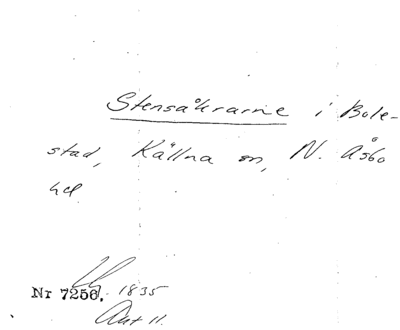 Stensåkrarne i Bole-
stad, Källna sn, N. Åsbo
hd.
Nr 7256. 1835
Akt 11.